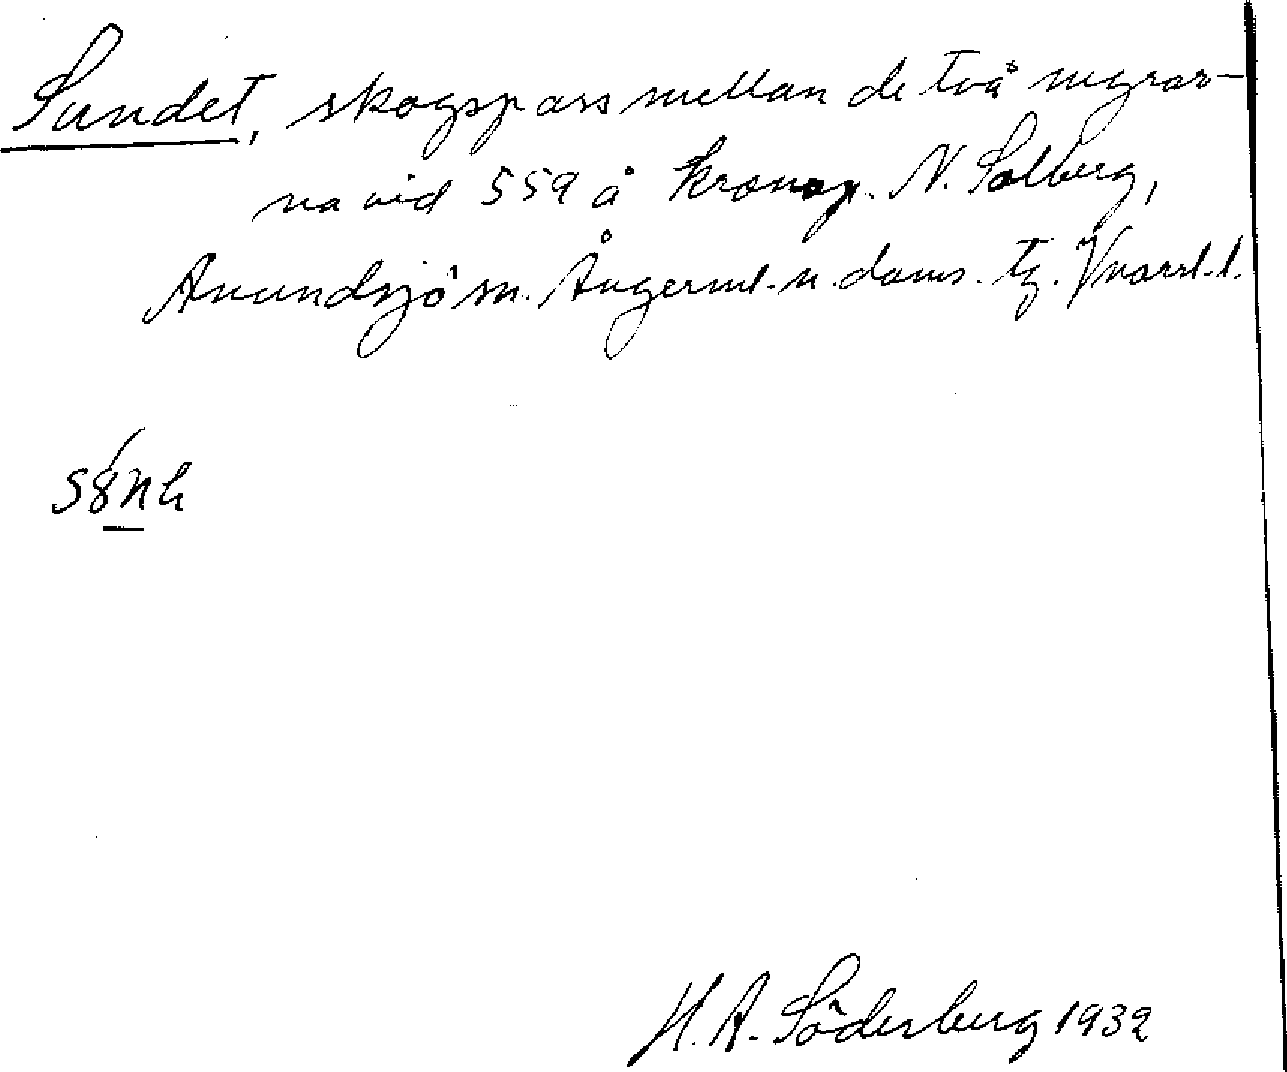 Sundet, skogspass mellan de två myrar-
na vid 559 å kronop. N. Solberg,
Anundsjö sn. Ångerml. n. doms. tg. Västl. l.
H. A. Söderberg 1932